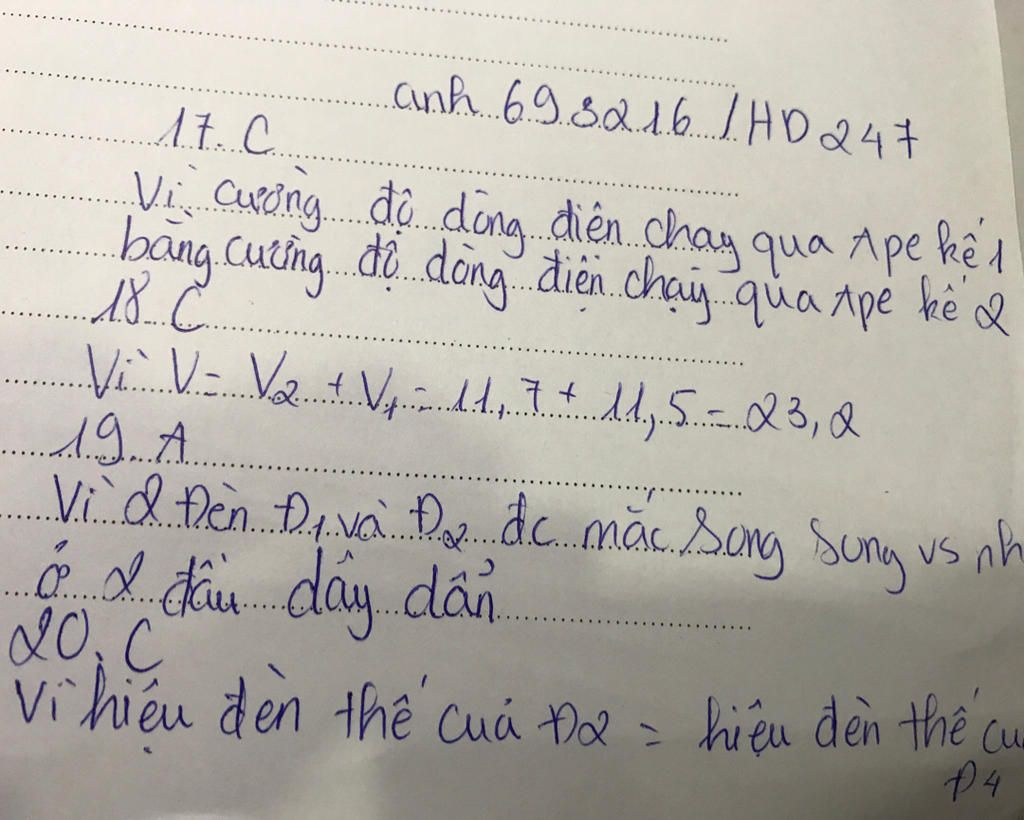 anh 693216 / HD 247
17. C
Vì cường độ dòng điên chay qua Ape kế 1
bằng cường độ dòng điện chạy qua Ape kế 2
18 C
Vì V = V2 + V1 = 11,7 + 11,5 = 23,2
19. A
Vì 2 Đèn Đ1 và Đ2 đc mắc song song vs nh
ở 2 đầu dây dẩn
20. C
Vì hiệu đèn thế cuả Đ2 = hiệu đèn thế cu
Đ4